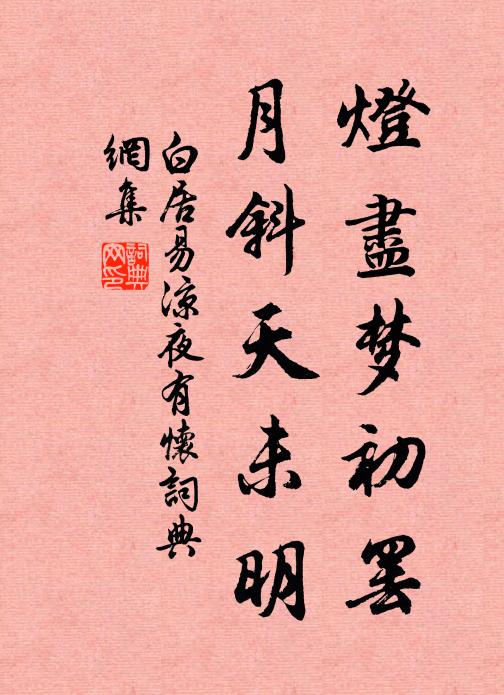 燈盡梦初罢
月斜天未明
白居易涼夜有懷詞典
網集
詞典
网印